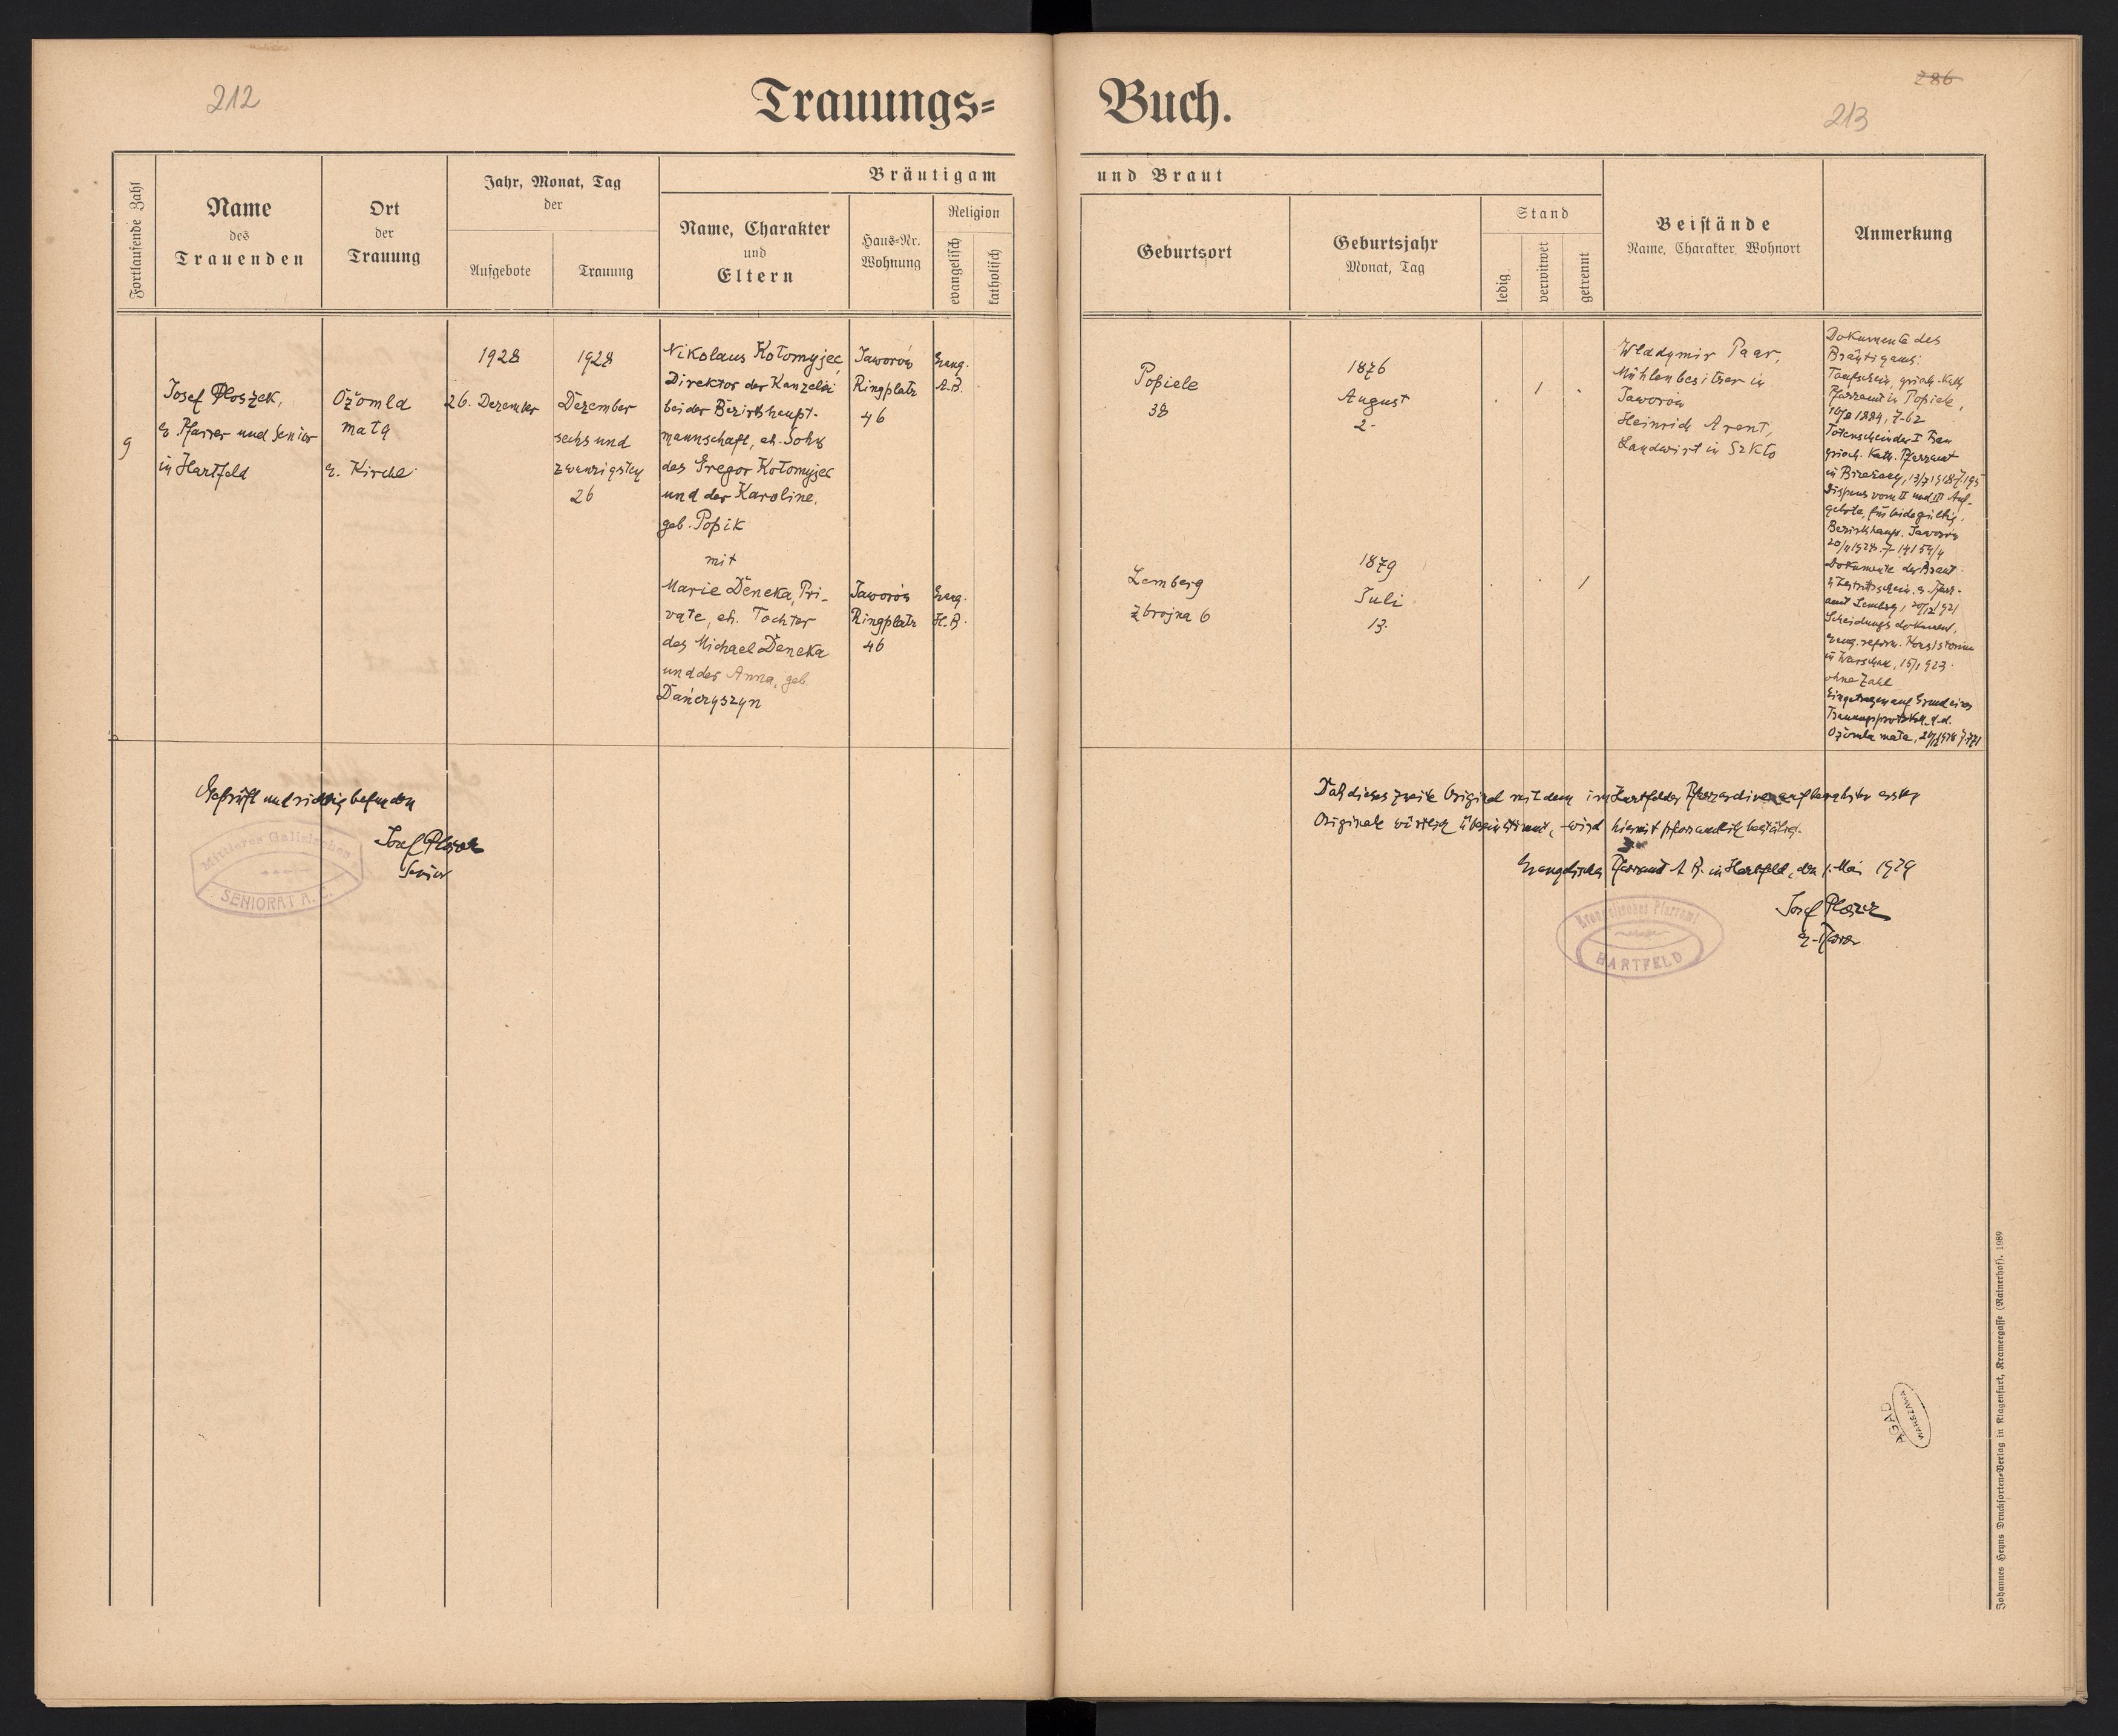 212
Trauungs=
Fortlaufende Zahl
Name
des
Trauenden
Ort
der
Trauung
Jahr, Monat, Tag
der
Aufgebote
Trauung
Bräutigam
Name, Charakter
und
Eltern
Haus=Nr.
Wohnung
Religion
evangelisch
katholisch
9
Josef Ploszek,
e. Pfarrer und Senior
in Hartfeld
Ożomla
mała
e. Kirche
1928
26. Dezember
1928
Dezember
sechs und
zwanzigsten
26
Nikolaus Kołomyjec,
Direktor der Kanzelei
bei der Bezirkshaupt-
mannschaft, eh. Sohn
des Gregor Kołomyjec
und der Karoline,
geb. Popik
mit
Marie Deneka, Pri-
vate, eh. Tochter
des Michael Deneka
und der Anna, geb.
Dańczyszyn
Jaworów
Ringplatz
46
Evang.
A.B.
Jaworów
Ringplatz
46
Evang.
H.B.
Geprüft und richtig befunden
Josef Ploszek
Senior
Mittleres Galizisches
SENIORAT A. C.
286
213
Buch.
und Braut
Geburtsort
Geburtsjahr
Monat, Tag
Stand
ledig
verwitwet
getrennt
Beistände
Name, Charakter, Wohnort
Anmerkung
Popiele
38
1876
August
2.
1
Wladymir Paar,
Mühlenbesitzer in
Jaworów
Heinrich Arent,
Landwirt in Szkło
Lemberg
Zbrojna 6
1879
Juli
13.
1
Dokumente des
Bräutigams:
Taufschein, griech.-kath.
Pfarramt in Popiele,
Totenschein der I Frau
griech. kath. Pfarramt
Dispens vom II und III Auf-
gebote, für beide gültig,
Bezirkshaupt. Jaworów
Dokumente der Braut
amt Lemberg,
Scheidungsdokument,
Evang. reform. Konsistorium
in Warschau,
ohne Zahl
Eingetragen auf Grund eines
Trauungsprotokoll d.d.
Ożomla mała,
Daß dieses zweite Original mit dem im Hartfelder Pfarrarchive aufbewahrten ersten
Originale wörtlich übereinstimmt, wird hiermit pfarramtlich bestätigt.
Evangelisches Pfarramt A. B. in Hartfeld, den 1. Mai 1929
Josef Ploszek
e. Pfarrer
Evangelisches Pfarramt
HARTFELD
AGAD
WARSZAWA
Johannes Heyns Drucksorten=Verlag in Klagenfurt, Kramergasse (Rainerhof). 1989